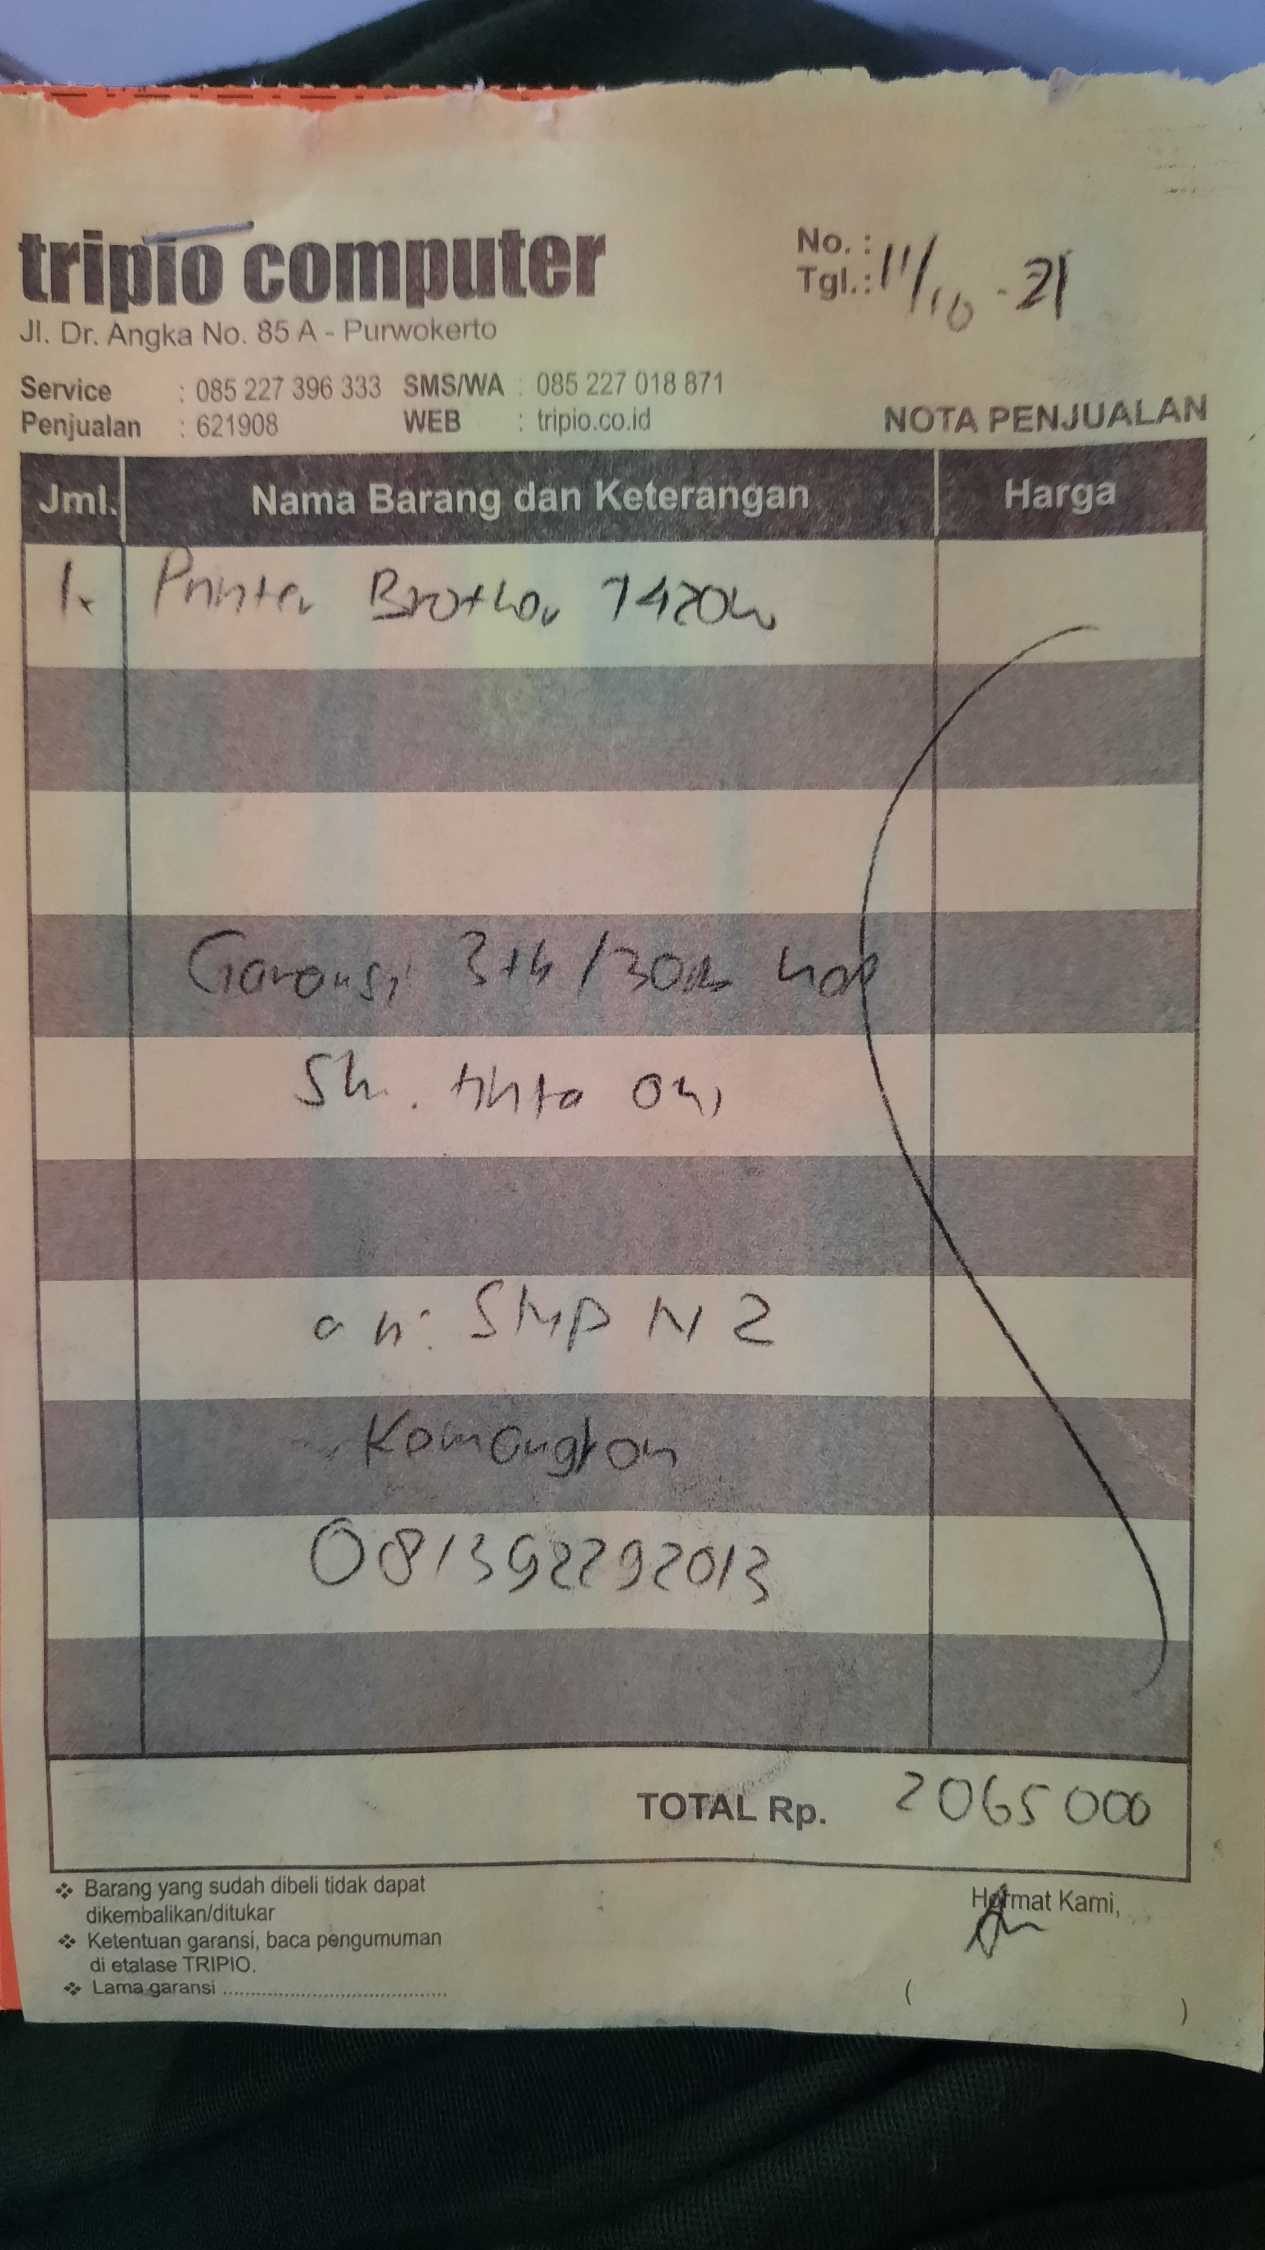 tripio computer
Jl. Dr. Angka No. 85 A - Purwokerto
No. :
Tgl. : 11/10 - 21
Service : 085 227 396 333 SMS/WA : 085 227 018 871
Penjualan : 621908 WEB : tripio.co.id
NOTA PENJUALAN
Jml. Nama Barang dan Keterangan Harga
1. Printer Brother 7420w
Garansi 3th /30rb hal
Sk. tinta ori
an: SMP N 2
Komangkon
081392292013
TOTAL Rp. 2065000
❖ Barang yang sudah dibeli tidak dapat
dikembalikan/ditukar
❖ Ketentuan garansi, baca pengumuman
di etalase TRIPIO.
❖ Lama garansi ........................................
Hormat Kami,
( )